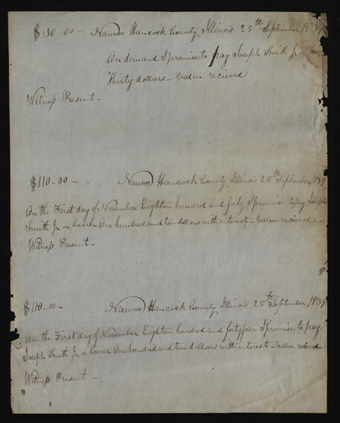 $30-00- Nauvoo Hancock County, Illinois 25th September 1839
On demand I promise to pay Joseph Smith Jr
Thirty dollars - value recieved
Witness Present -
$110-00- Nauvoo Hancock County Illinois 25th September 1839
On the First day of November Eighteen hundred and forty I promise to pay Joseph
Smith Jr or bearer One hundred and ten dollars with interest - value recieved -
Witness Present -
$110-00- Nauvoo Hancock County, Illinois 25th September 1839
On the First day of November Eighteen hundred and forty four I promise to pay
Joseph Smith Jr or bearer One hundred and ten dollars with interest value
Witness Present -